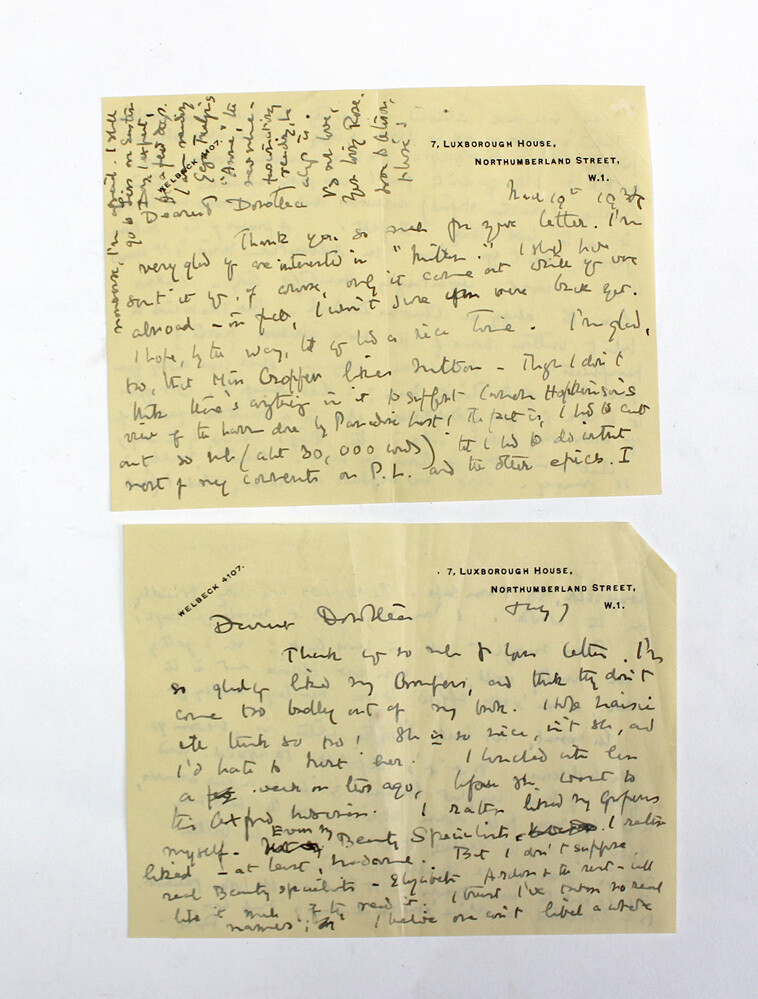 7, LUXBOROUGH HOUSE,
NORTHUMBERLAND STREET,
W.1.
WELBECK 4107.
Dearest Dorothea
Thank you so much for your letter. I'm
very glad you are interested in "Milton." I shd have
sent it you, of course, only it came out while you were
abroad – in fact, I wasn't sure you were back yet.
I hope, by the way, tt you had a nice time. I'm glad,
too, that Miss Cropper likes Milton – though I don't
think there's anything in it to support Canon Hopkinson's
view of the harm done by Paradise Lost! The fact is, I had to cut
out so much (abt 30,000 words) tt I had to do without
most of my comments on P.L. and the other epics. I
nonsense, I'm afraid. I shall
go to on Easter
Day, I expect,
for a few days.
I am reading
"the
new
fascinating
reading, he
always is.
V. best love,
Yr loving Rose.
7, LUXBOROUGH HOUSE,
NORTHUMBERLAND STREET,
W.1.
WELBECK 4107.
7
Dearest Dorothea
Thank you so much for your letter. I'm
so glad you liked my Croppers, and think they don't
come too badly out of my book. I hope
will think so too! She is so nice, isn't she, and
I'd hate to hurt her. I lunched with
a week or two ago, before she went to
this Oxford business. I rather liked my
myself. Even my Beauty Specialists I rather
liked – at least, . But I don't suppose
real Beauty specialists – Elizabeth Arden & the rest – will
like it much, if they read it. I trust I've taken no real
names; I believe one can't libel a whole